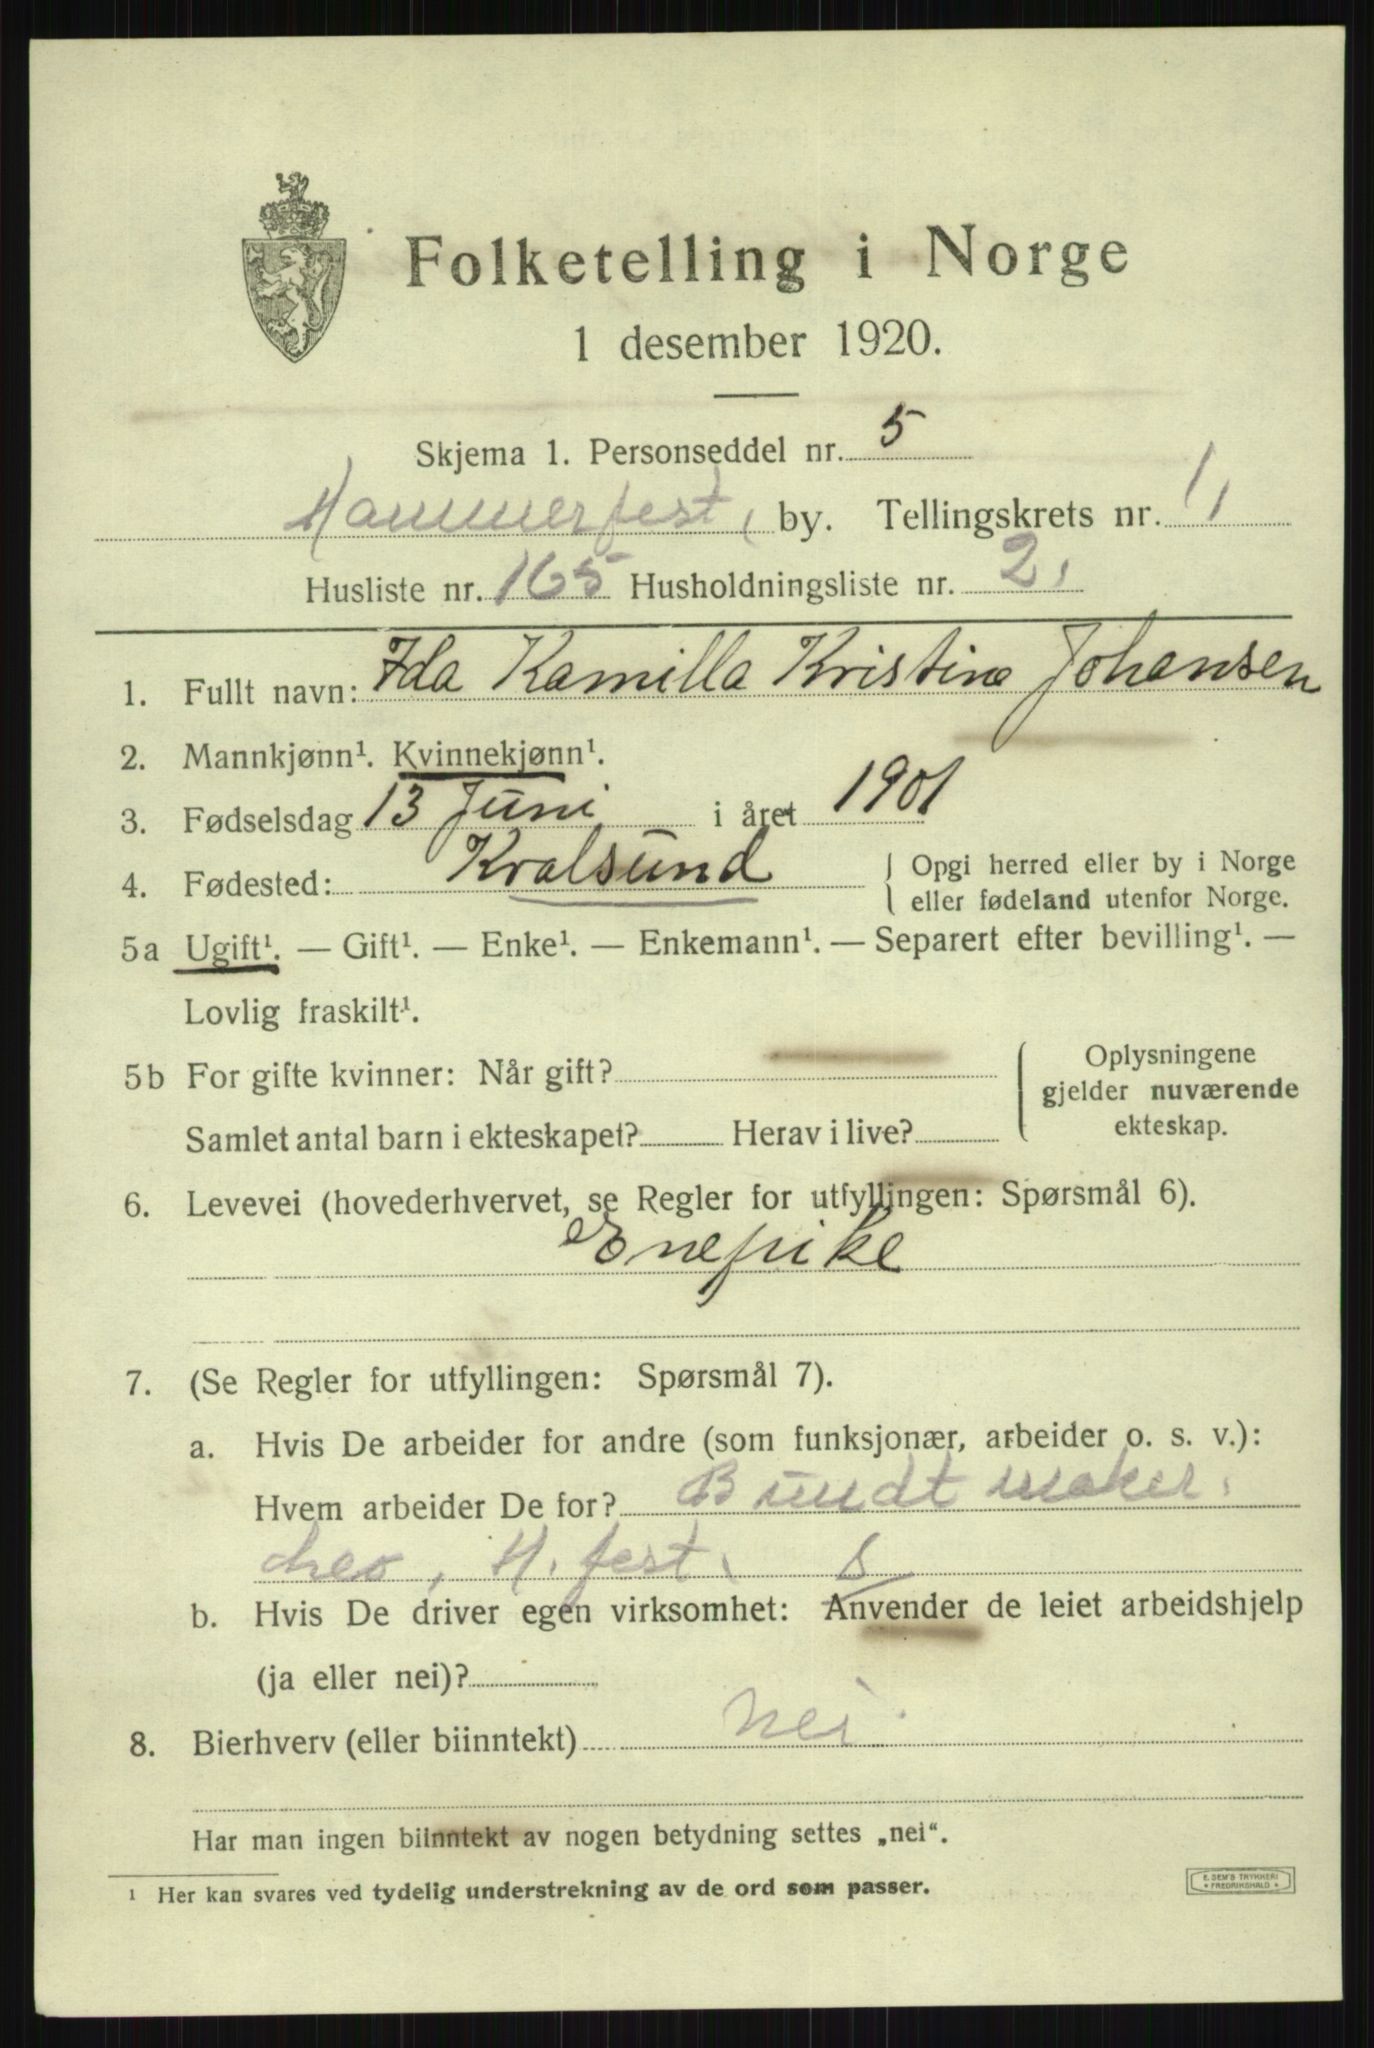 Folketelling i Norge
1 desember 1920.
Skjema 1. Personseddel nr. 5
Hammerfest, by. Tellingskrets nr. 1,
Husliste nr. 165 Husholdningsliste nr. 2,
1. Fullt navn: Ida Kamilla Kristine Johansen
2. Mannkjønn¹. Kvinnekjønn¹.
3. Fødselsdag 13 Juni i året 1901
4. Fødested: Kvalsund { Opgi herred eller by i Norge
eller fødeland utenfor Norge.
5a Ugift¹. — Gift¹. — Enke¹. — Enkemann¹. — Separert efter bevilling¹. —
Lovlig fraskilt¹.
5b For gifte kvinner: Når gift? { Oplysningene
gjelder nuværende
Samlet antal barn i ekteskapet? Herav i live? ekteskap.
6. Levevei (hovederhvervet, se Regler for utfyllingen: Spørsmål 6).
Enepike
7. (Se Regler for utfyllingen: Spørsmål 7).
a. Hvis De arbeider for andre (som funksjonær, arbeider o. s. v.):
Hvem arbeider De for? Bundtmaker
H.fest.
b. Hvis De driver egen virksomhet: Anvender de leiet arbeidshjelp
(ja eller nei)?
8. Bierhverv (eller biinntekt) Nei
Har man ingen biinntekt av nogen betydning settes „nei“.
¹ Her kan svares ved tydelig understrekning av de ord som passer.
E. SEM'S TRYKKERI
• FREDRIKSHALD •